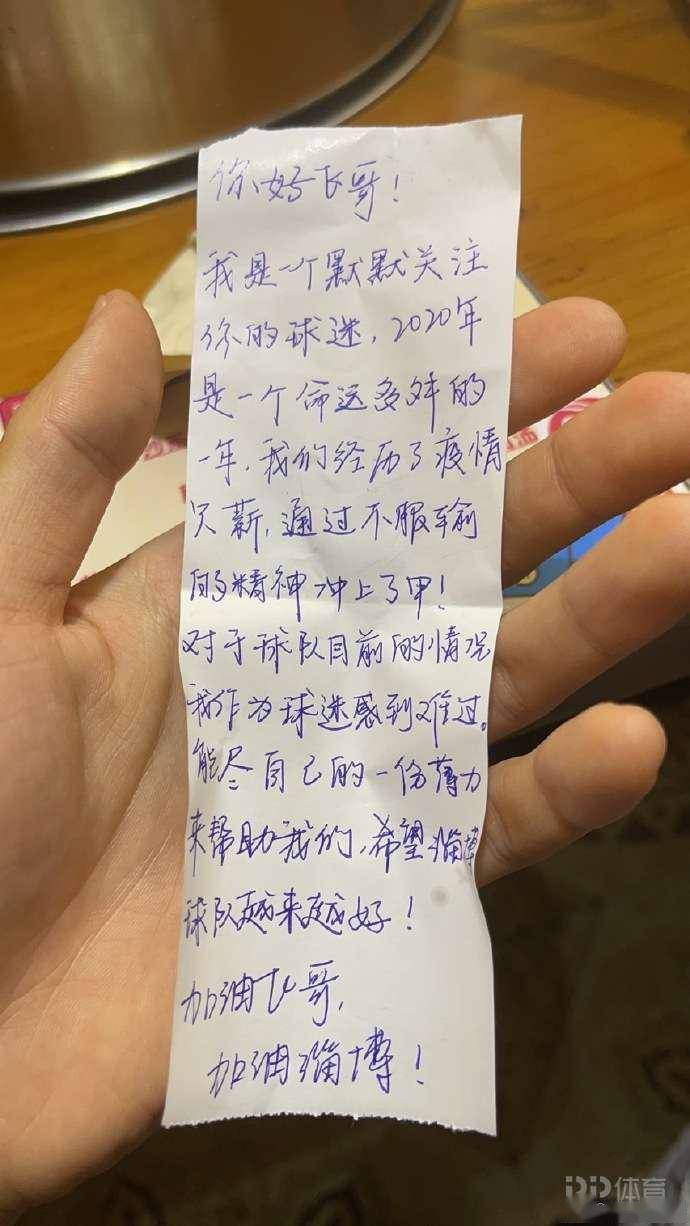 你好飞哥！
我是一个默默关注
你的球迷，2020年
是一个命运多舛的
一年，我们经历了疫情
欠薪，通过不服输
的精神冲上了甲！
对于球队目前的情况
我作为球迷感到难过。
能尽自己的一份薄力
来帮助我们，希望淄博
球队越来越好！
加油飞哥，
加油淄博！
DD体育